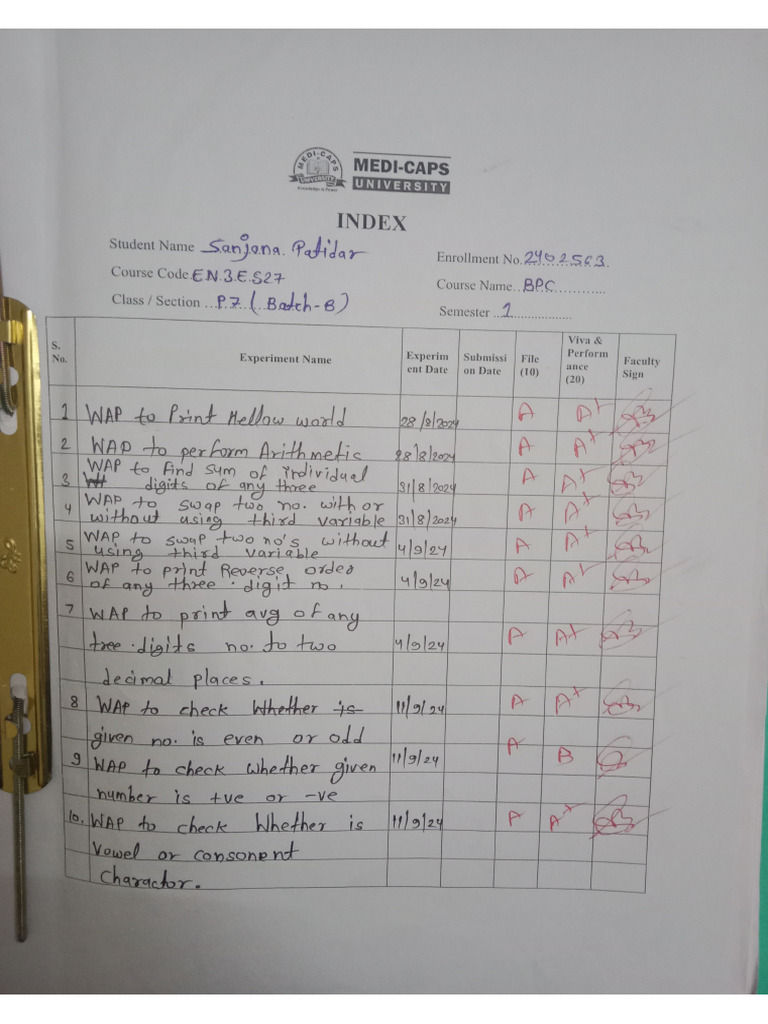 MEDI-CAPS
UNIVERSITY
Knowledge is Power
MEDI-CAPS
UNIVERSITY
INDEX
Student Name Sanjana Patidar
Enrollment No. 2402563
Course Code EN3ES27
Course Name BPC
Class / Section P.7 (Batch-B)
Semester 1
S. No. Experiment Name Experim ent Date Submissi on Date File (10) Viva & Perform ance (20) Faculty Sign
1 WAP to Print Hellow world 28/8/2024 A A+
2 WAP to perform Arithmetic 28/8/2024 A A+
WAP to find sum of individual
3 digits of any three 31/8/2024 A A+
4 WAP to swap two no. with or
without using third variable 31/8/2024 A A+
5 WAP to swap two no's without
using third variable 4/9/24 A A+
6 WAP to print Reverse order
of any three digit no. 4/9/24 A A+
7 WAP to print avg of any
tree digits no. to two 4/9/24 A A+
decimal places.
8 WAP to check Whether is 11/9/24 A A+
given no. is even or odd
9 WAP to check whether given 11/9/24 A B
number is +ve or -ve
10. WAP to check Whether is 11/9/24 A A+
Vowel or consonent
Charactor.